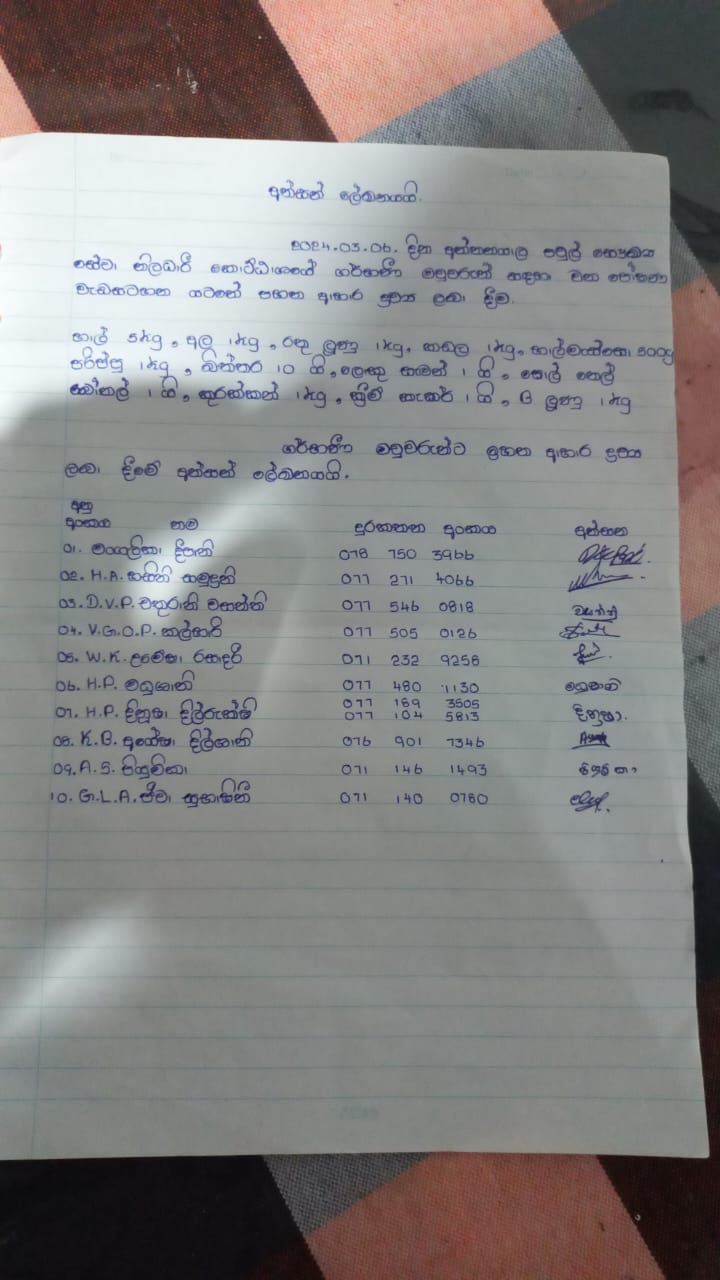 අත්සන් ලේඛනයයි.
2024.03.06. දින අත්තනගල්ල පවුල් සෞඛ්‍ය
සේවා නිලධාරී කොට්ඨාශයේ ගර්භණී මව්වරුන් සඳහා වන පෝෂණ
වැඩසටහන යටතේ පහත ආහාර ද්‍රව්‍ය ලබා දීම.
හාල් 5kg, අල 1kg, රතු ලූණු 1kg, කඩල 1kg, හාල්මැස්සො 500g
පරිප්පු 1kg, බිත්තර 10 යි, ලොකු සැමන් 1 යි, පොල් තෙල්
බෝතල් 1 යි, කුරක්කන් 1kg, ක්‍රීම් ක්‍රැකර් 1 යි, B ලූණු 1kg
ගර්භණී මව්වරුන්ට ඉහත ආහාර ද්‍රව්‍ය
ලබා දීමේ අත්සන් ලේඛනයයි.
අනු
අංකය නම දුරකතන අංකය අත්සන
01. මංගලිකා දීපානි 078 750 3966
02. H.A. හසිනි සමුදුනි 077 271 4066
03. D.V.P. චතුරානි වසන්ති 077 546 0818 වසන්ති
04. V.G.O.P. කල්හාරි 077 505 0126
05. W.K. උමේෂා රසාදරි 071 232 9258
06. H.P. මධුශානි 077 480 1130 මධුශානි
077 189 3505
07. H.P. දිනූෂා දිල්රුක්ෂි 077 104 5813 දිනූෂා.
08. K.B. අයේෂා දිල්ශානි 076 901 7346
09. A.S. පියුමිකා 071 146 1493
10. G.L.A. ජීවා සුභාෂිනී 071 140 0780